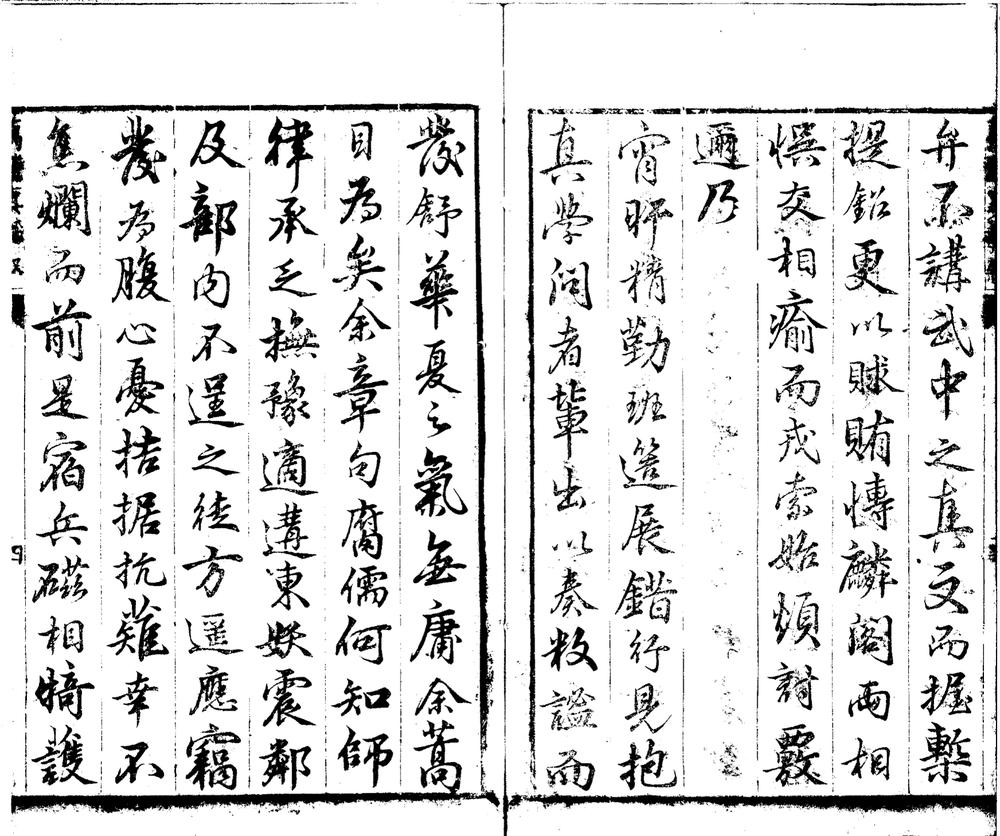 弁不講武中之真文而握槧
提鉛更以賕賄博麟閣兩相
惧交相瘉而戎索始煩討覈
邇乃
宵旰精勤班簉展錯行見抱
真學問者輩出以奏敉謐而
發舒華夏之氣無庸余蒿
目為矣余章句腐儒何知師
律承乏撫豫適遘東妖震鄰
及部内不逞之徒方遥應竊
發為腹心憂拮据抗難幸不
焦爛而前是宿兵礠相犄護